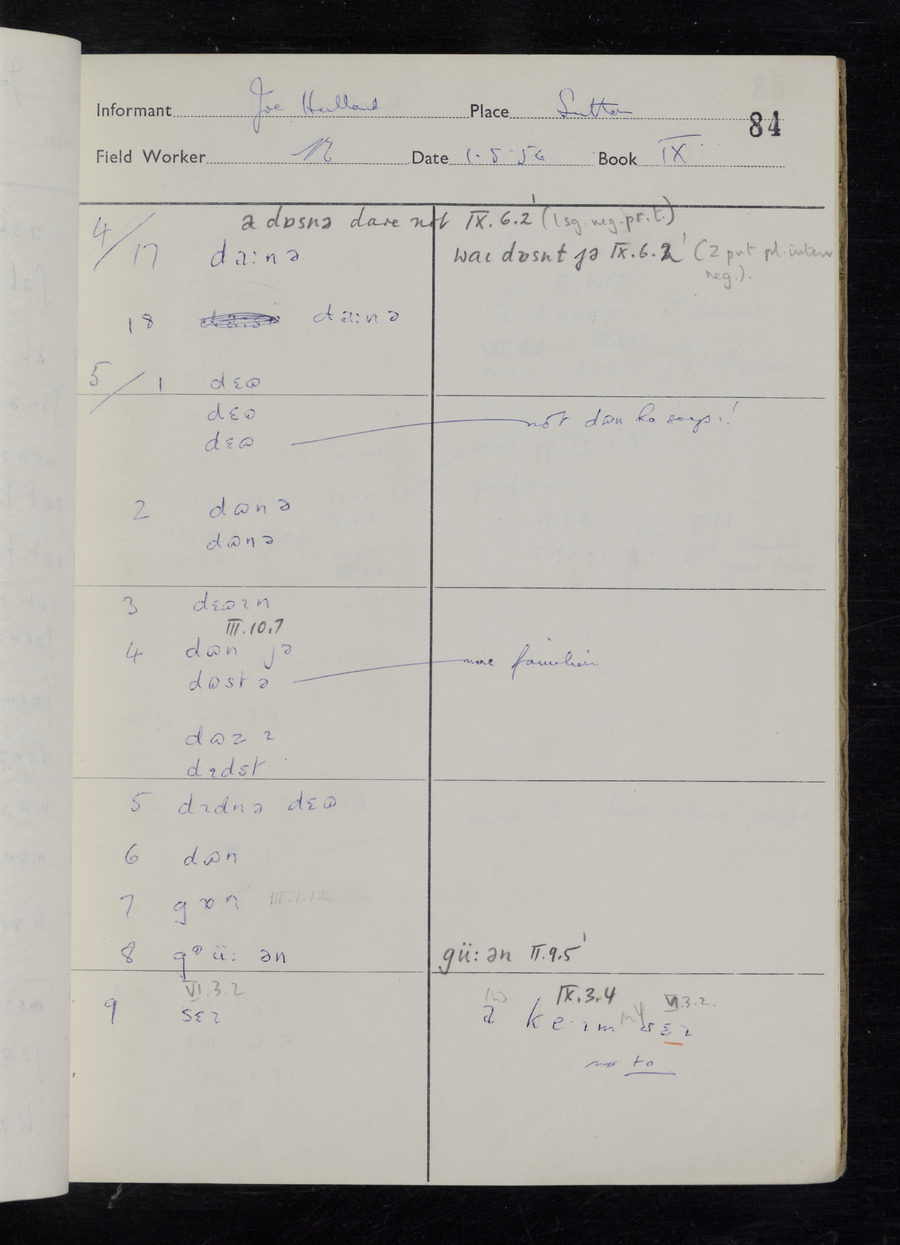 Informant Joe Holland Place Sutton
84
Field Worker Date 1-5-56 Book IX
a dɒsnə dare not IX.6.2 (1 sg neg. pr. t.)
4/17 da:nə
waɪ dɒsnt jə IX.6.2 (2 prt pl. interr neg.).
18 da:nə
5/1 dɛɷ
dɛɷ
dɛɷ not dɷn he says!!
2 dɷnə
dɷnə
3 dɛɷɪn
III.10.7
4 dɷn jə
dɷstə more familiar
dɷzɪ
dɪdst
5 dɪdnə dɛɷ
6 dɷn
7 gɒn III.1.12
8 gᶷü:ən gü:ən II.9.5
VI.3.2 IX.3.4 VI.3.2.
9 sɛɪ ke·ɪm sɛɪ
no to